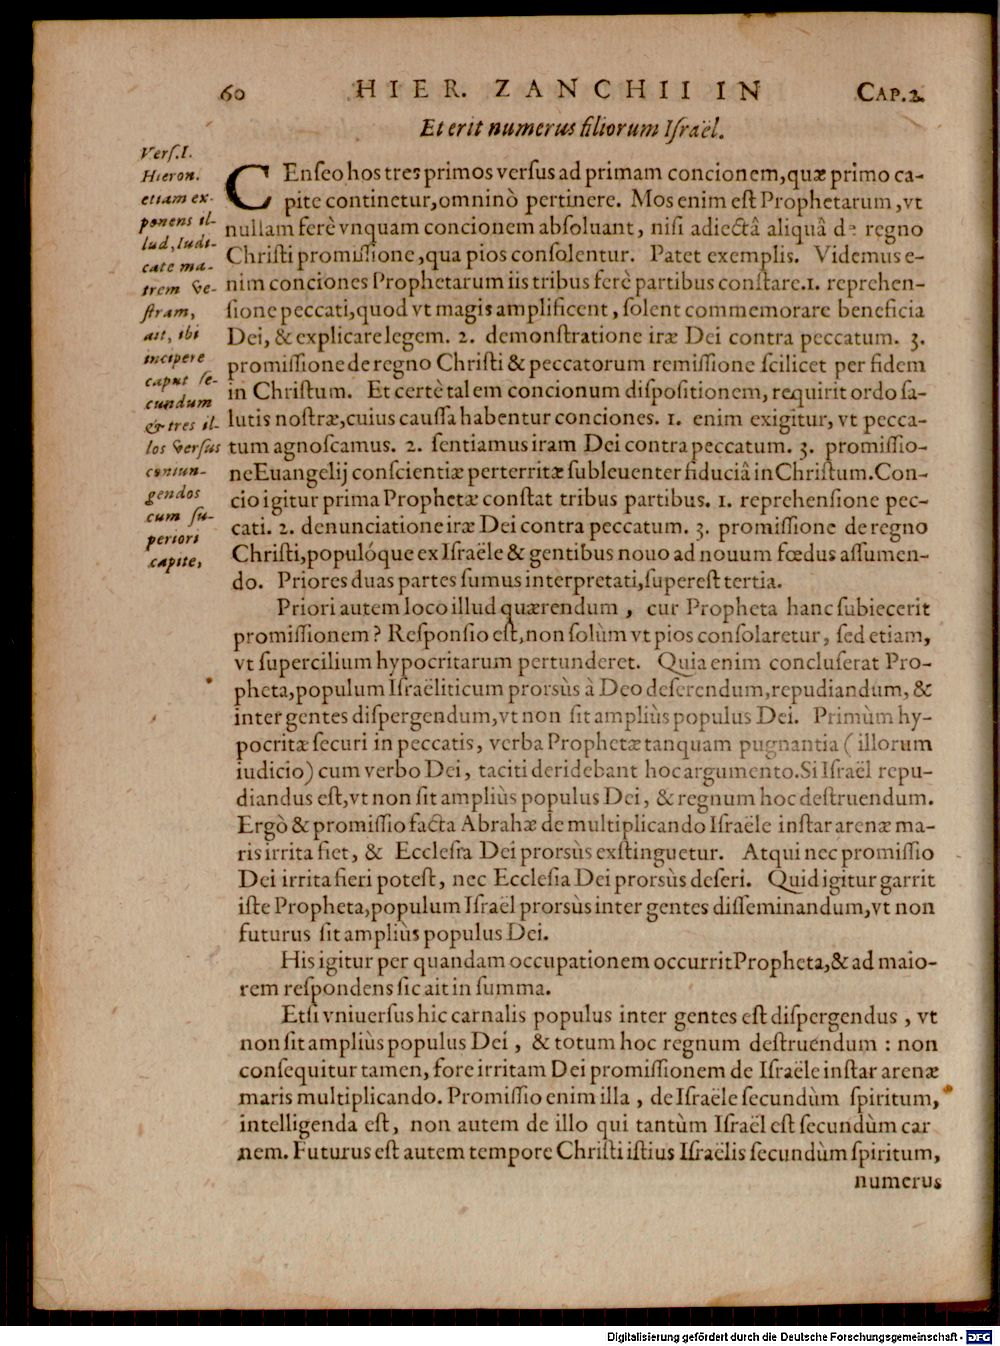 60 HIER. ZANCHII IN CAP.2.
Et erit numerus filiorum Iſraël.
Verſ.I.
Hieron.
etiam ex-
ponens il-
lud, Iudi-
cate ma-
trem ve-
ſtram,
ait, ibi
incipere
caput ſe-
cundum
& tres il-
los verſus
coniun-
gendos
cum ſu-
periori
capite,
CEnſeo hos tres primos verſus ad primam concionem, quæ primo ca-
pite continetur, omninò pertinere. Mos enim eſt Prophetarum, vt
nullam ferè vnquam concionem abſoluant, niſi adiectâ aliquâ de regno
Chriſti promiſſione, qua pios conſolentur. Patet exemplis. Videmus e-
nim conciones Prophetarum iis tribus ferè partibus conſtare. 1. reprehen-
ſione peccati, quod vt magis amplificent, ſolent commemorare beneficia
Dei, & explicare legem. 2. demonſtratione iræ Dei contra peccatum. 3.
promiſſione de regno Chriſti & peccatorum remiſſione ſcilicet per fidem
in Chriſtum. Et certè talem concionum diſpoſitionem, requirit ordo ſa-
lutis noſtræ, cuius cauſſa habentur conciones. 1. enim exigitur, vt pecca-
tum agnoſcamus. 2. ſentiamus iram Dei contra peccatum. 3. promiſſio-
ne Euangelij conſcientiæ perterritæ ſubleuenter fiduciâ in Chriſtum. Con-
cio igitur prima Prophetæ conſtat tribus partibus. 1. reprehenſione pec-
cati. 2. denunciatione iræ Dei contra peccatum. 3. promiſſione de regno
Chriſti, populóque ex Iſraële & gentibus nouo ad nouum fœdus aſſumen-
do. Priores duas partes ſumus interpretati, ſupereſt tertia.
Priori autem loco illud quærendum, cur Propheta hanc ſubiecerit
promiſſionem? Reſponſio eſt, non ſolùm vt pios conſolaretur, ſed etiam,
vt ſupercilium hypocritarum pertunderet. Quia enim concluſerat Pro-
pheta, populum Iſraëliticum prorsùs à Deo deſerendum, repudiandum, &
inter gentes diſpergendum, vt non ſit ampliùs populus Dei. Primùm hy-
pocritæ ſecuri in peccatis, verba Prophetæ tanquam pugnantia (illorum
iudicio) cum verbo Dei, taciti deridebant hoc argumento. Si Iſraël repu-
diandus eſt, vt non ſit ampliùs populus Dei, & regnum hoc deſtruendum.
Ergò & promiſſio facta Abrahæ de multiplicando Iſraële inſtar arenæ ma-
ris irrita fiet, & Eccleſia Dei prorsùs exſtinguetur. Atqui nec promiſſio
Dei irrita fieri poteſt, nec Eccleſia Dei prorsùs deſeri. Quid igitur garrit
iſte Propheta, populum Iſraël prorsùs inter gentes diſſeminandum, vt non
futurus ſit ampliùs populus Dei.
His igitur per quandam occupationem occurrit Propheta, & ad maio-
rem reſpondens ſic ait in ſumma.
Etſi vniuerſus hic carnalis populus inter gentes eſt diſpergendus, vt
non ſit ampliùs populus Dei, & totum hoc regnum deſtruendum: non
conſequitur tamen, fore irritam Dei promiſſionem de Iſraële inſtar arenæ
maris multiplicando. Promiſſio enim illa, de Iſraële ſecundùm ſpiritum,
intelligenda eſt, non autem de illo qui tantùm Iſraël eſt ſecundùm car
nem. Futurus eſt autem tempore Chriſti iſtius Iſraëlis ſecundùm ſpiritum,
numerus
Digitalisierung gefördert durch die Deutsche Forschungsgemeinschaft - DFG